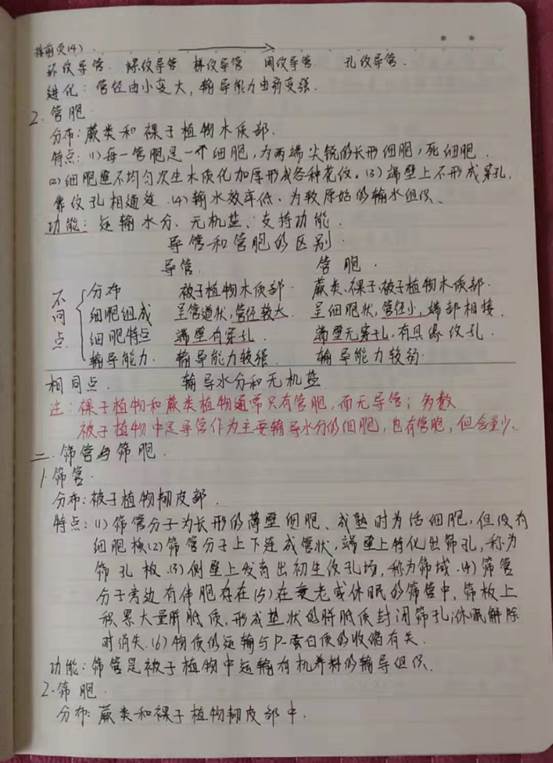 环纹导管 螺纹导管 梯纹导管 网纹导管 孔纹导管.
进化: 管径由小变大, 输导能力由弱变强.
2. 管胞.
分布: 蕨类和裸子植物木质部.
特点: (1) 每一管胞是一个细胞, 为两端尖锐的长形细胞, 死细胞.
(2) 细胞壁不均匀次生木质化加厚形成各种花纹. (3) 端壁上不形成穿孔,
靠纹孔相通连 (4) 输水效率低. 为较原始的输水组织.
功能: 运输水分、无机盐、支持功能.
导管和管胞的区别.
导管. 管胞.
不同点
分布 被子植物木质部. 蕨类、裸子、被子植物木质部.
细胞组成 呈管道状, 管径较大. 呈细胞状, 管径小, 端部相接.
细胞特点 端壁有穿孔. 端壁无穿孔, 有具缘纹孔.
输导能力. 输导能力较强. 输导能力较弱.
相同点. 输导水分和无机盐
注: 裸子植物和蕨类植物通常只有管胞, 而无导管; 多数
被子植物中是导管作为主要输导水分的细胞, 也有管胞, 但含量少.
二. 筛管与筛胞.
1. 筛管.
分布: 被子植物韧皮部.
特点: (1) 筛管分子为长形的薄壁细胞、成熟时为活细胞, 但没有
细胞核 (2) 筛管分子上下连成管状, 端壁上特化出筛孔, 称为
筛孔板. (3) 侧壁上发育出初生纹孔场, 称为筛域. (4) 筛管
分子旁边有伴胞存在 (5) 在衰老或休眠的筛管中, 筛板上
积累大量胼胝质, 形成垫状的胼胝质封闭筛孔; 休眠解除
时消失. (6) 物质的运输与P-蛋白质的收缩有关.
功能: 筛管是被子植物中运输有机养料的输导组织.
2. 筛胞.
分布: 蕨类和裸子植物韧皮部中.